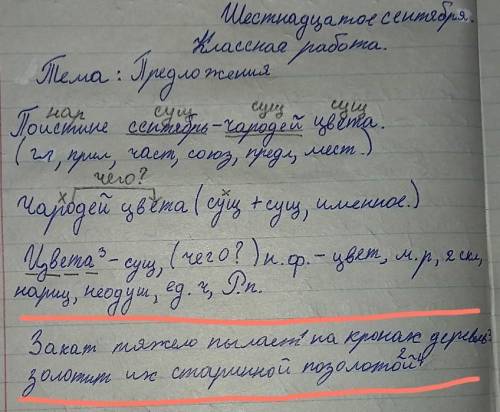 Шестнадцатое сентября.
Классная работа.
Тема: Предложения
нар сущ сущ сущ
Поистине сентябрь-чародей цвета.
(гл, прил, част, союз, предл, мест.)
чего?
х
Чародей цвета (сущ + сущ, именное.)
Цвета³ - сущ, (чего?) н.ф. - цвет, м.р, 2 скл,
нариц, неодуш, ед. ч, Р.п.
Закат тяжело пылает¹ на кронах деревьев
золотит их старинной позолотой²⁻⁴